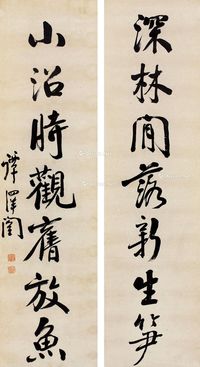 深林閒數新生笋
小沼時觀舊放魚
譚澤闓